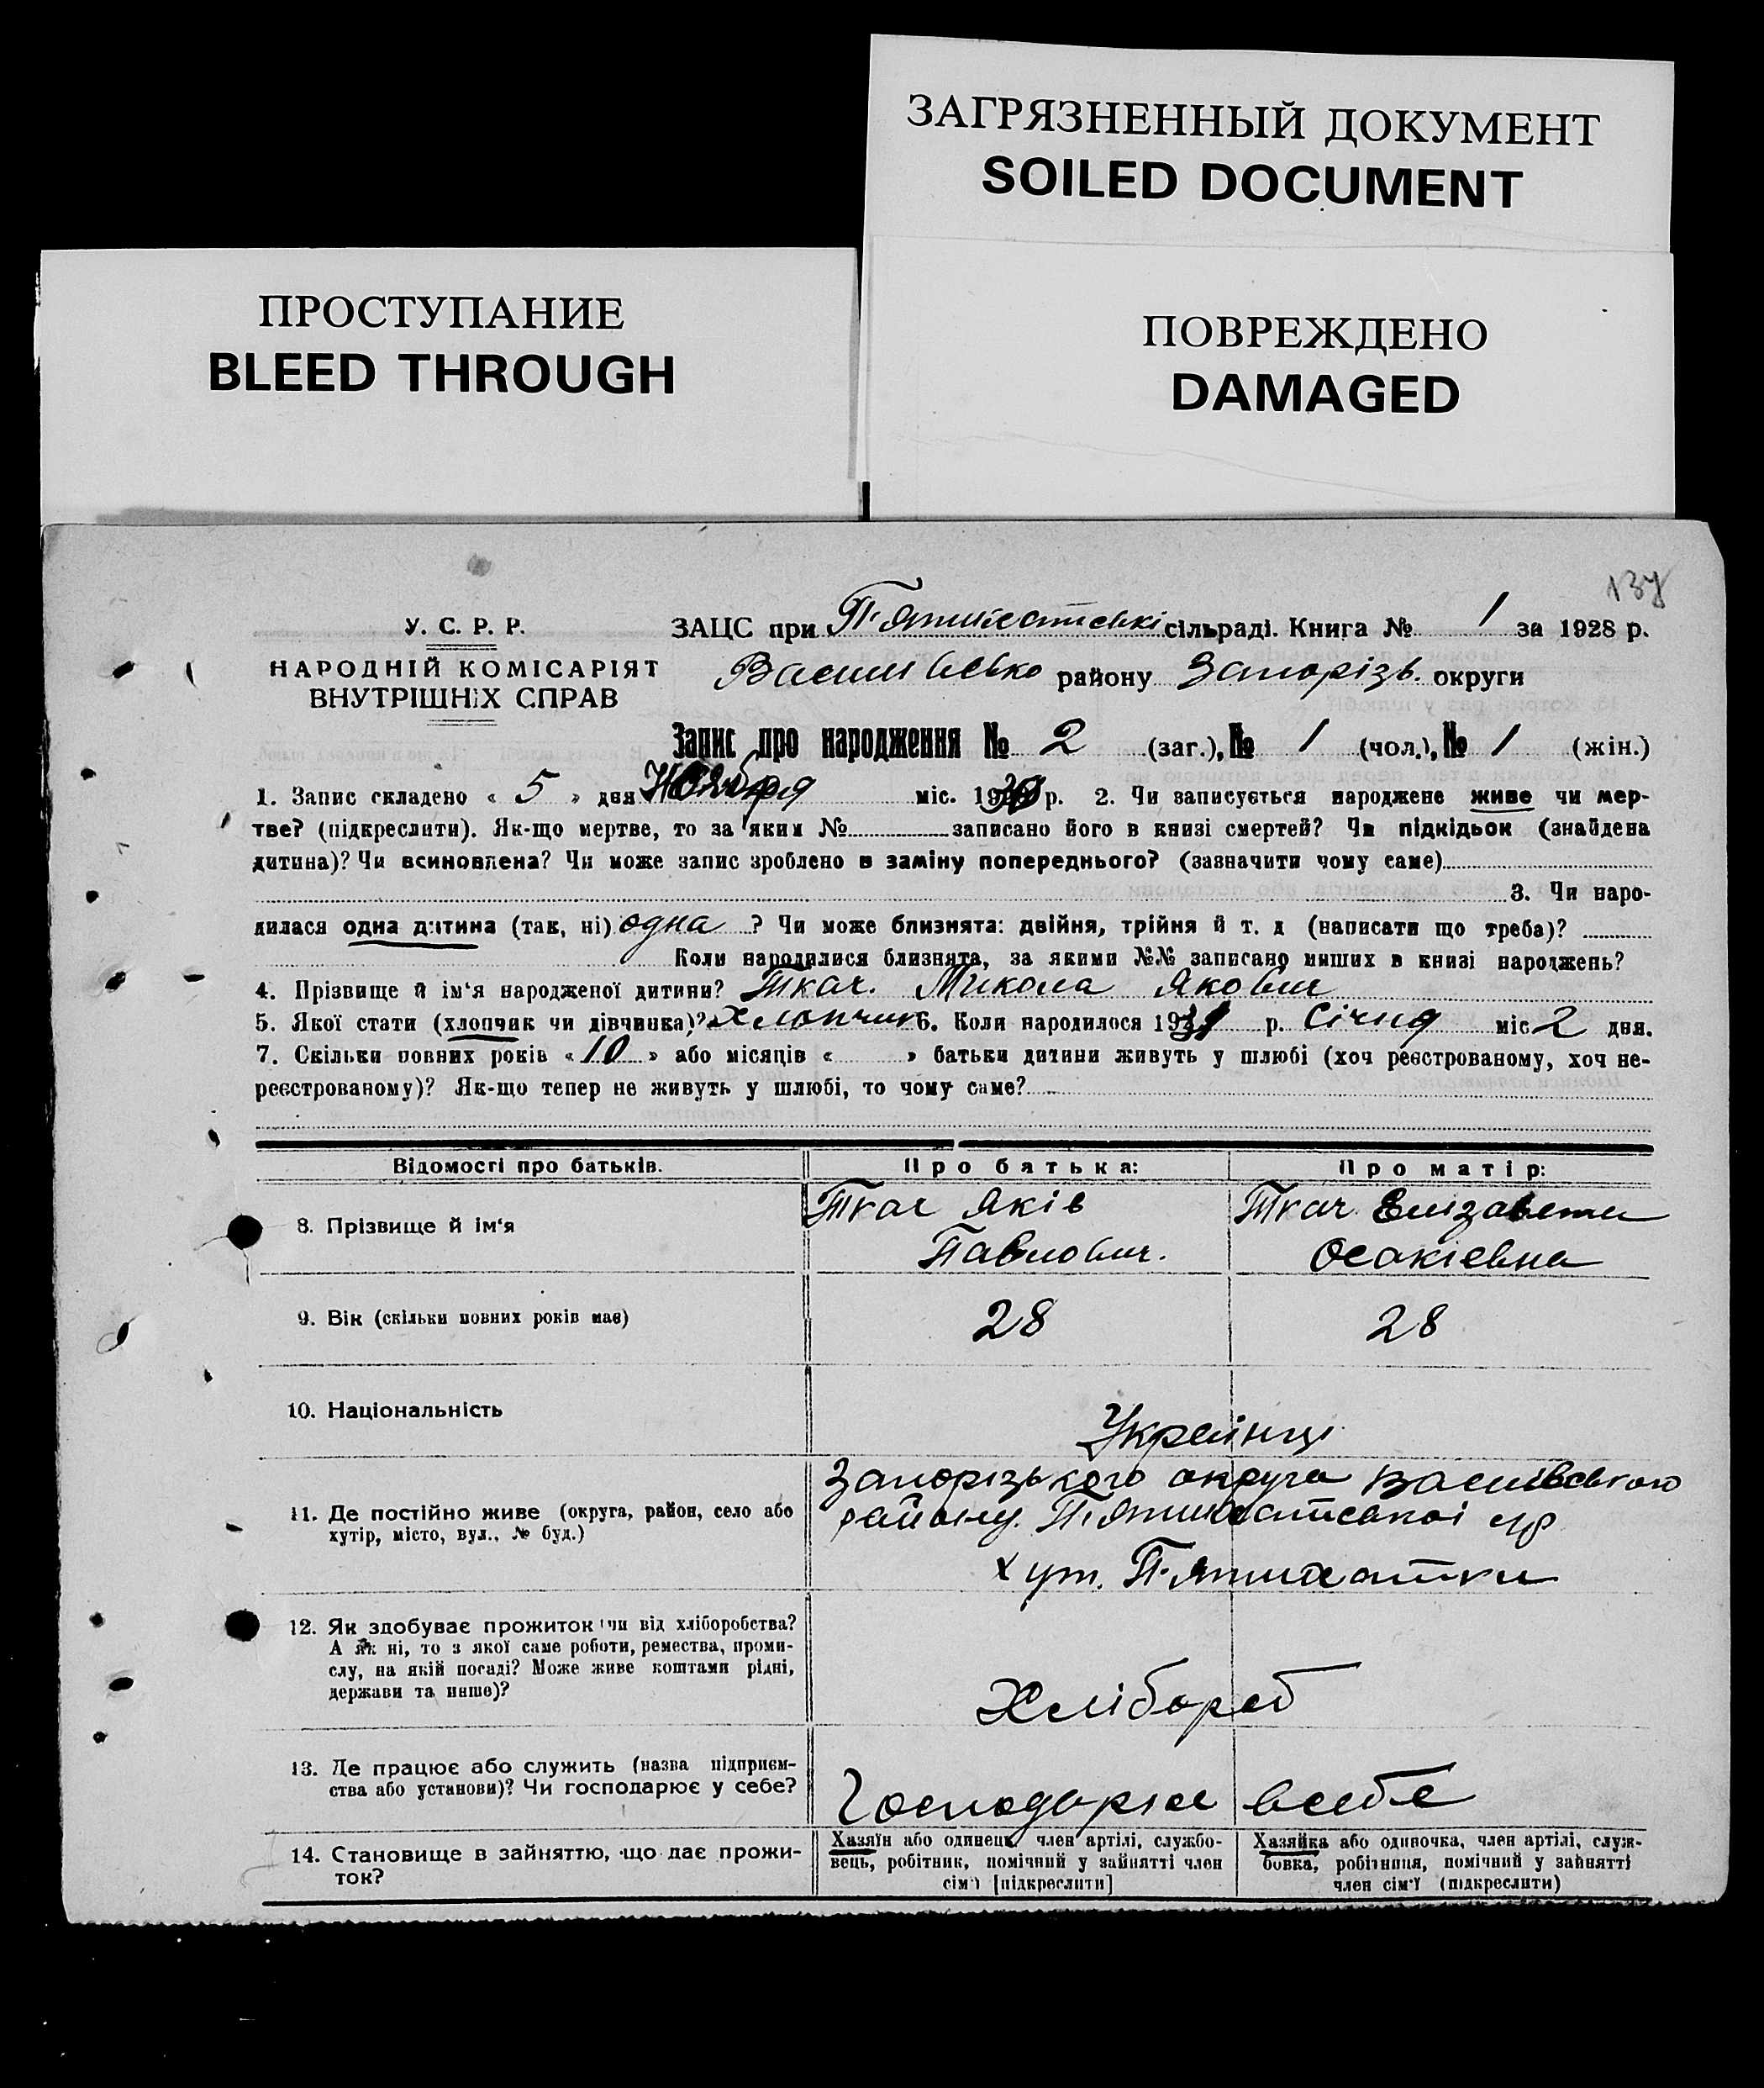 ЗАГРЯЗНЕННЫЙ ДОКУМЕНТ
SOILED DOCUMENT
ПРОСТУПАНИЕ
BLEED THROUGH
ПОВРЕЖДЕНО
DAMAGED
У. С. Р. Р.
НАРОДНІЙ КОМІСАРІЯТ
ВНУТРІШНІХ СПРАВ
ЗАЦС при П'ятихатські сільраді. Книга № 1 за 1928 р.
Василівсько району Запорізь. округи
Запис про народження № 2 (заг.), № 1 (чол.), № 1 (жін.)
1. Запис складено « 5 » дня міс. р. 2. Чи записується народжене живе чи мер-
тве? (підкреслити). Як-що мертве, то за яким № записано його в книзі смертей? Чи підкідьок (знайдена
дитина)? Чи всиновлена? Чи може запис зроблено в заміну попереднього? (зазначити чому саме)
3. Чи наро-
дилася одна дитина (так, ні) одна ? Чи може близнята: двійня, трійня й т. д (написати що треба)?
Коли народилися близнята, за якими №№ записано инших в книзі народжень?
4. Прізвище й ім'я народженої дитини? Ткач. Микола Якович
5. Якої стати (хлопчик чи дівчинка)? хлопчик 6. Коли народилося р. Січня міс 2 дня.
7. Скільки повних років « 10 » або місяців « » батьки дитини живуть у шлюбі (хоч реєстрованому, хоч не-
реєстрованому)? Як-що тепер не живуть у шлюбі, то чому саме?
Відомості про батьків. Про батька: Про матір:
8. Прізвище й ім'я Ткач Яків Ткач Елизавета
Павлович. Осакіевна
9. Вік (скільки повних років має) 28 28
10. Національність Українці
11. Де постійно живе (округа, район, село або
хутір, місто, вул., № буд.)
Запорізького округа Василівського
району. П'ятихатської с/р
хут. П'ятихатки
12. Як здобуває прожиток чи від хліборобства?
А як ні, то з якої саме роботи, ремества, проми-
слу, на якій посаді? Може живе коштами рідні,
держави та инше)?
Хлібороб
13. Де працює або служить (назва підприєм-
ства або установи)? Чи господарює у себе?
Господарює всебе
14. Становище в зайняттю, що дає прожи-
ток?
Хазяїн або одинець, член артілі, службо-
вець, робітник, помічний у зайнятті член
сім'ї [підкреслити]
Хазяйка або одиночка, член артілі, служ-
бовка, робітниця, помічний у зайнятті
член сім'ї (підкреслити)